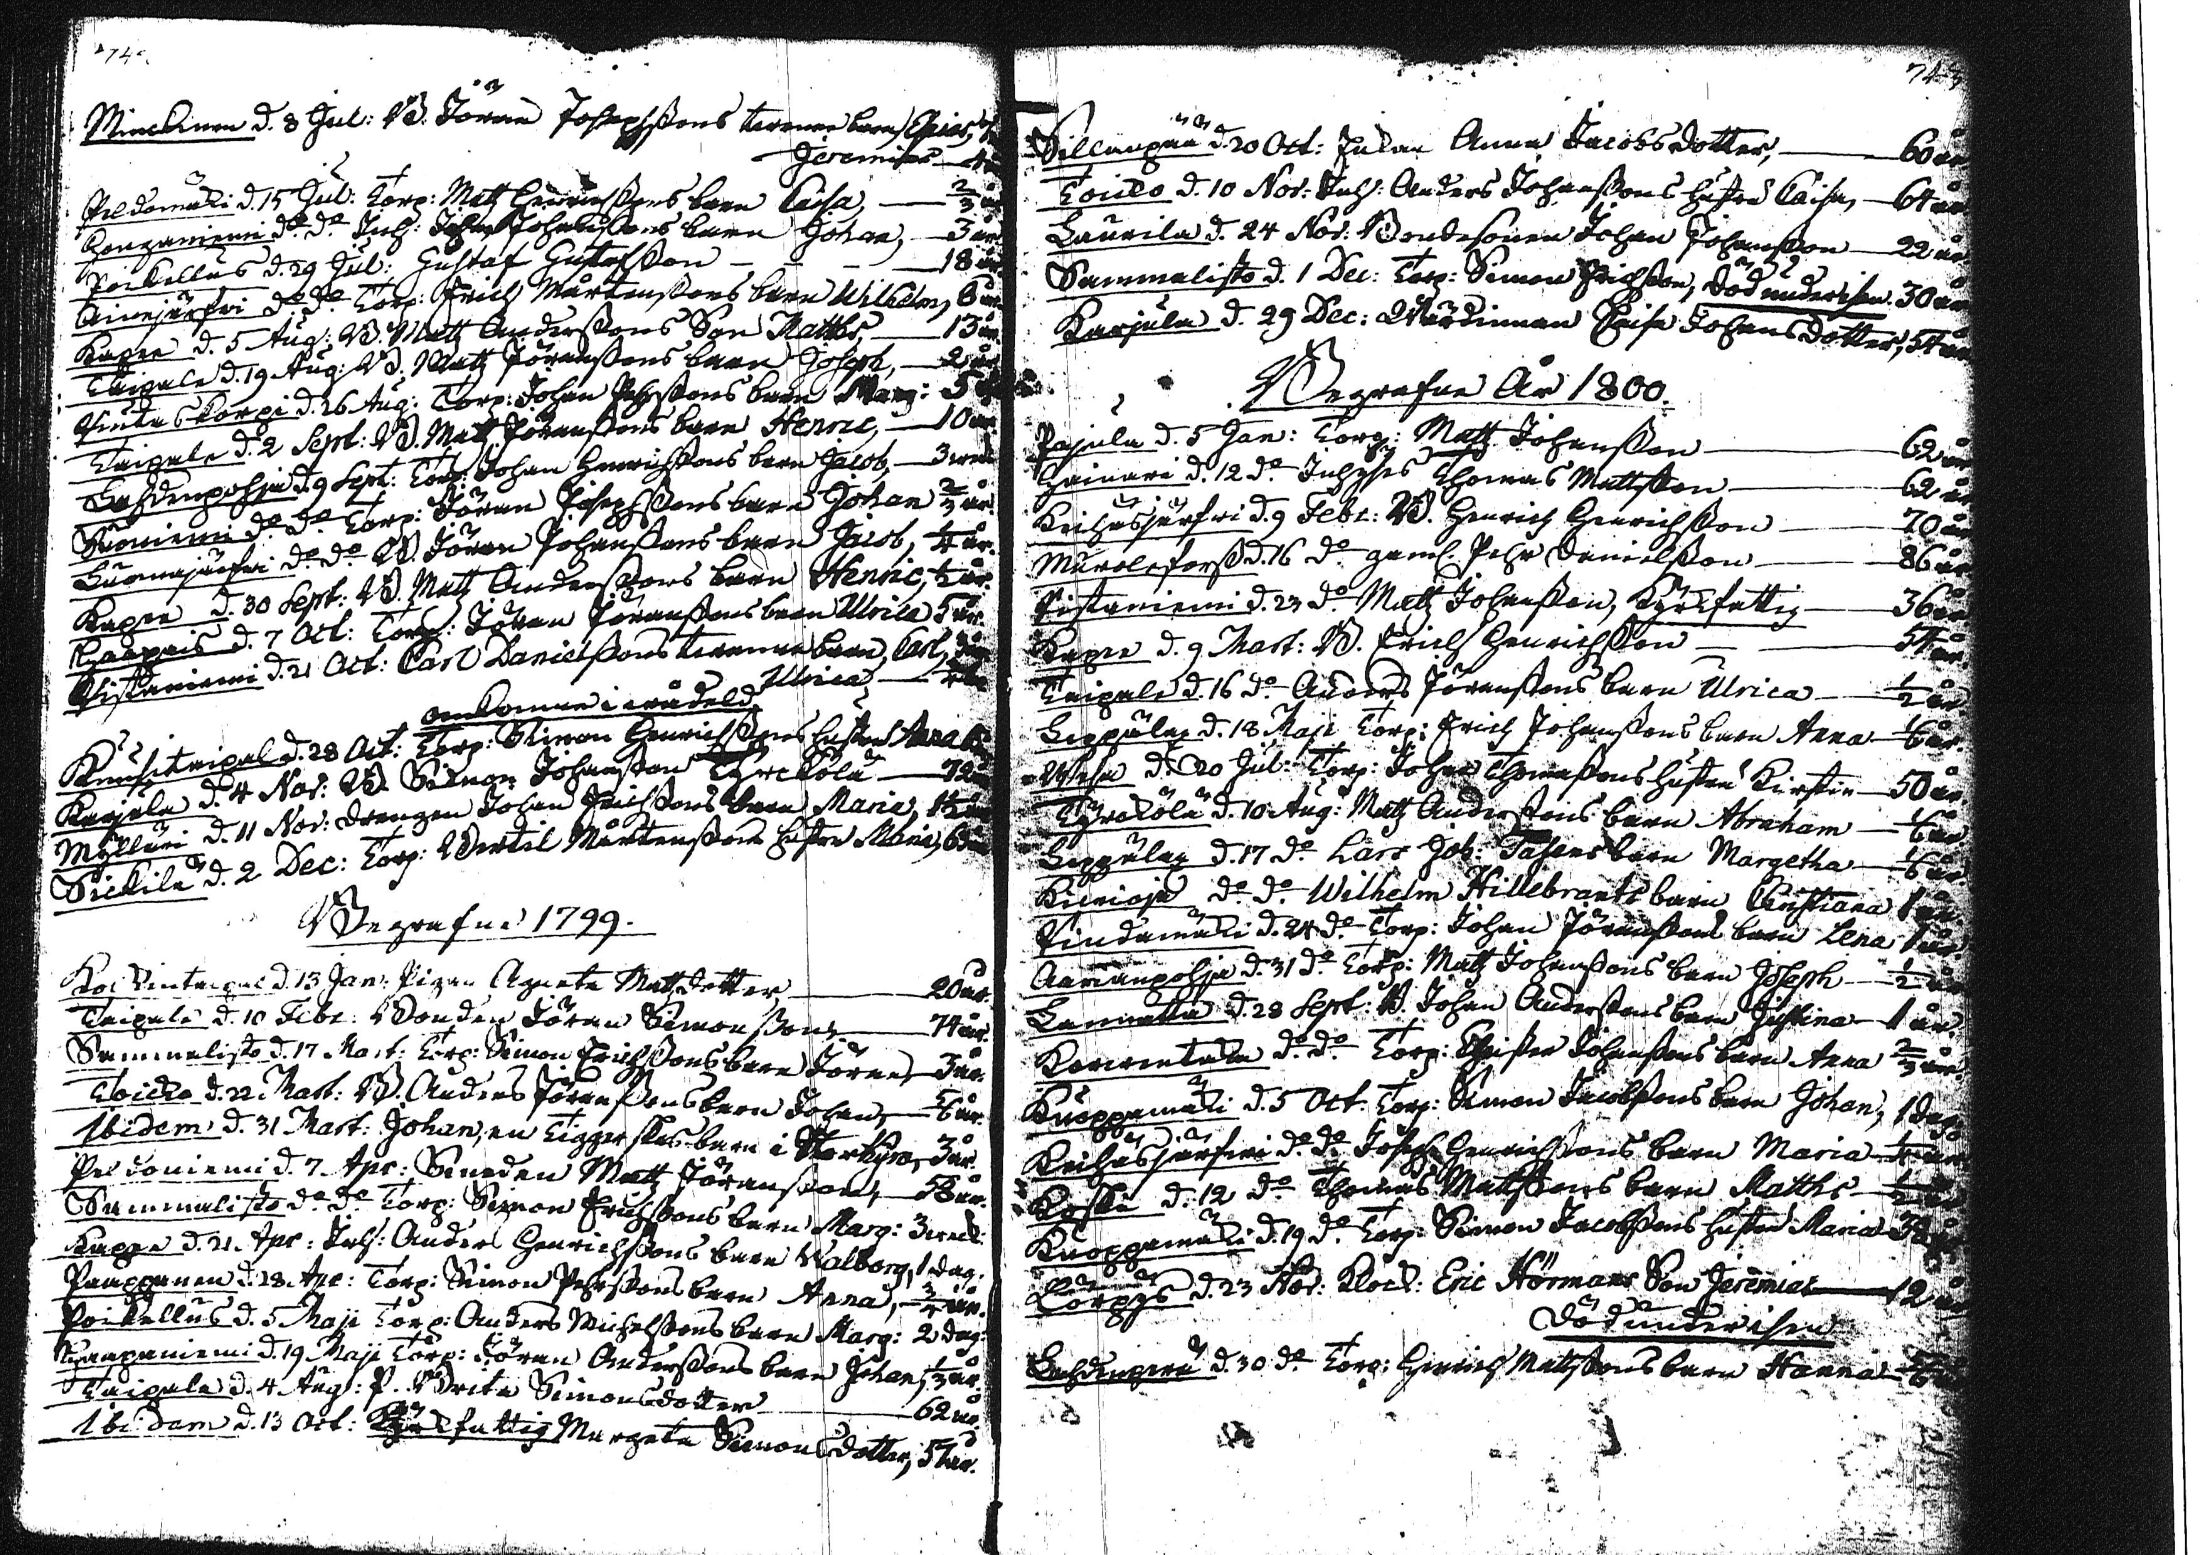 74
Minckinen d. 8 Jul: B. Jöran Josephssons tvenne barn,
Jeremias
Peldomäki d. 15 Jul: Torp: Matts Henrichssons barn Caisa, — 2/3 år
d:o d:o Inh: Johan Johanssons barn Johan, — 3 år
Poikellus d. 29 Jul: Gustaf Gustafsson — — — 18 år
Ainejärfvi d:o d:o Torp: Erich Mårtenssons barn Wilhelm, 6 år
Kapee d. 5 Aug: B. Matts Anderssons Son Matths, — 13 år
Taipale d. 19 Aug: B. Matts Jöranssons barn Joseph, — 2 år
d. 26 Aug: Torp: Johan Pehrssons barn Marg: 5
Taipale d. 2 Sept: B. Matts Jöranssons barn Henric, — 10 år
Lahdenpohja d. 9 Sept: Torp: Johan Henrichssons barn Jacob, — 3 veck
d:o d:o Torp: Jöran Josephssons barn Johan 2/3 år
d:o d:o B. Jöran Johanssons barn Jacob, 1/4 år.
Kapee d. 30 Sept: B. Matts Anderssons barn Henric, 1/2 år.
d. 7 Oct: Torp: Jöran Jöranssons barn Ulrica 5 år.
d. 21 Oct: Carl Danielssons tvenne barn, Carl,
Ulrica, —
omkomne i vådeld
d. 28 Oct: Torp: Simon Henrichssons hustru Anna
Karjula d. 4 Nov: B. Simon Johansson Tyrckölä — 72
Mylläri d. 11 Nov: drengen Johan Erichssons barn Maria, 1 1/2 år
Sickilä d. 2 Dec: Torp: Bertil Mårtenssons hustru Maria,
Begrafne 1799.
d. 13 Jan: Pigan Agneta Mattsdotter — 20 år.
Taipale d. 10 Febr: Bonden Jöran Simonsson, — 74 år.
Sammalisto d. 17 Mart: Torp: Simon Erichssons barn Jöran, 3 år.
Toicko d. 22 Mart: B. Anders Jöranssons barn Johan, — 1/6 år.
Ibidem d. 31 Mart: Johan, en Tiggerskas barn i Storkyro, 3 år.
Peldoniemi d. 7 Apr: Smeden Matts Jöransson, — 58 år.
Sammalisto d:o d:o Torp: Simon Erichssons barn Marg: 3 veck:
Kapee d. 21 Apr: Inh: Anders Henrichssons barn Walborg, 1 dag.
Paappanen d. 28 Apr: Torp: Simon Pehrssons barn Anna, — 3/4 år.
Poikellus d. 5 Maji Torp: Anders Michelssons barn Marg: 2 dag:
d. 19 Maji Torp: Jöran Anderssons barn Johan, 1/3 år.
Taipale d. 4 Aug: P. Brita Simonsdotter — 62 år.
Ibidem d. 13 Oct: Kyrckfattig Margeta Simonsdotter, 57 år.
Sillanpää d. 20 Oct: Enkan Anna Jacobsdotter, — 60 år
Toicko d. 10 Nov: Inh: Anders Johanssons hustru Caisa, — 64 år
Laurila d. 24 Nov: Bondesonen Johan Johansson — 22 år
Sammalisto d. 1 Dec: Torp: Simon Erichsson, död under isen. 30 år
Karjula d. 29 Dec: Wärdinnan Johansdotter, 54 år
Begrafne År 1800.
Pajula d. 5 Jan: Torp: Matts Johansson — 62 år
d. 12 d:o Inhyses Thomas Mattsson — 62 år
Keihäsjärfvi d. 9 Febr: B. Henrich Henrichsson — 70 år
Muroleforss d. 16 d:o gaml. Pehr Danielsson — 86 år
d. 23 d:o Matts Johansson, Kyrckfattig — 36 år
Kapee d. 9 Mart: B. Erich Henrichsson — 54 år.
Taipale d. 16 d:o Anders Jöranssons barn Ulrica — 1/2 år.
d. 18 Maji Torp: Erich Johanssons barn Anna — 1/6 år.
d. 20 Jul: Torp: Johan Thomassons hustru Kirstin — 50 år.
Tyrckölä d. 10 Aug: Matts Anderssons barn Abraham — 1/6 år
d. 17 d:o Lars Joh: barn Margetha — 1/6 år.
d:o d:o Wilhelm Hillebrants barn Christiana 1 år.
d. 24 d:o Torp: Johan Jöranssons barn Lena 1 år.
d. 31 d:o Torp: Matts Johanssons barn Joseph — 1/2 år
d. 28 Sept: B. Johan Anderssons barn Justina — 1 år.
d:o d:o Torp: Christer Johanssons barn Anna 2/3 år.
Kuoppamäki d. 5 Oct: Torp: Simon Jacobssons barn Johan, 1 dag.
Keihäsjärfvi d:o d:o Joseph Henrichssons barn Maria —
Koski d. 12 d:o Thomas Mattssons barn Matths — 1/2
Kuoppamäki d. 19 d:o Torp: Simon Jacobssons hustru Maria
d. 23 Nov: Klock: Eric Hörmans Son Jeremias — 12 år
död under isen
d. 30 d:o Torp: Henrich Mattssons barn Hanna —